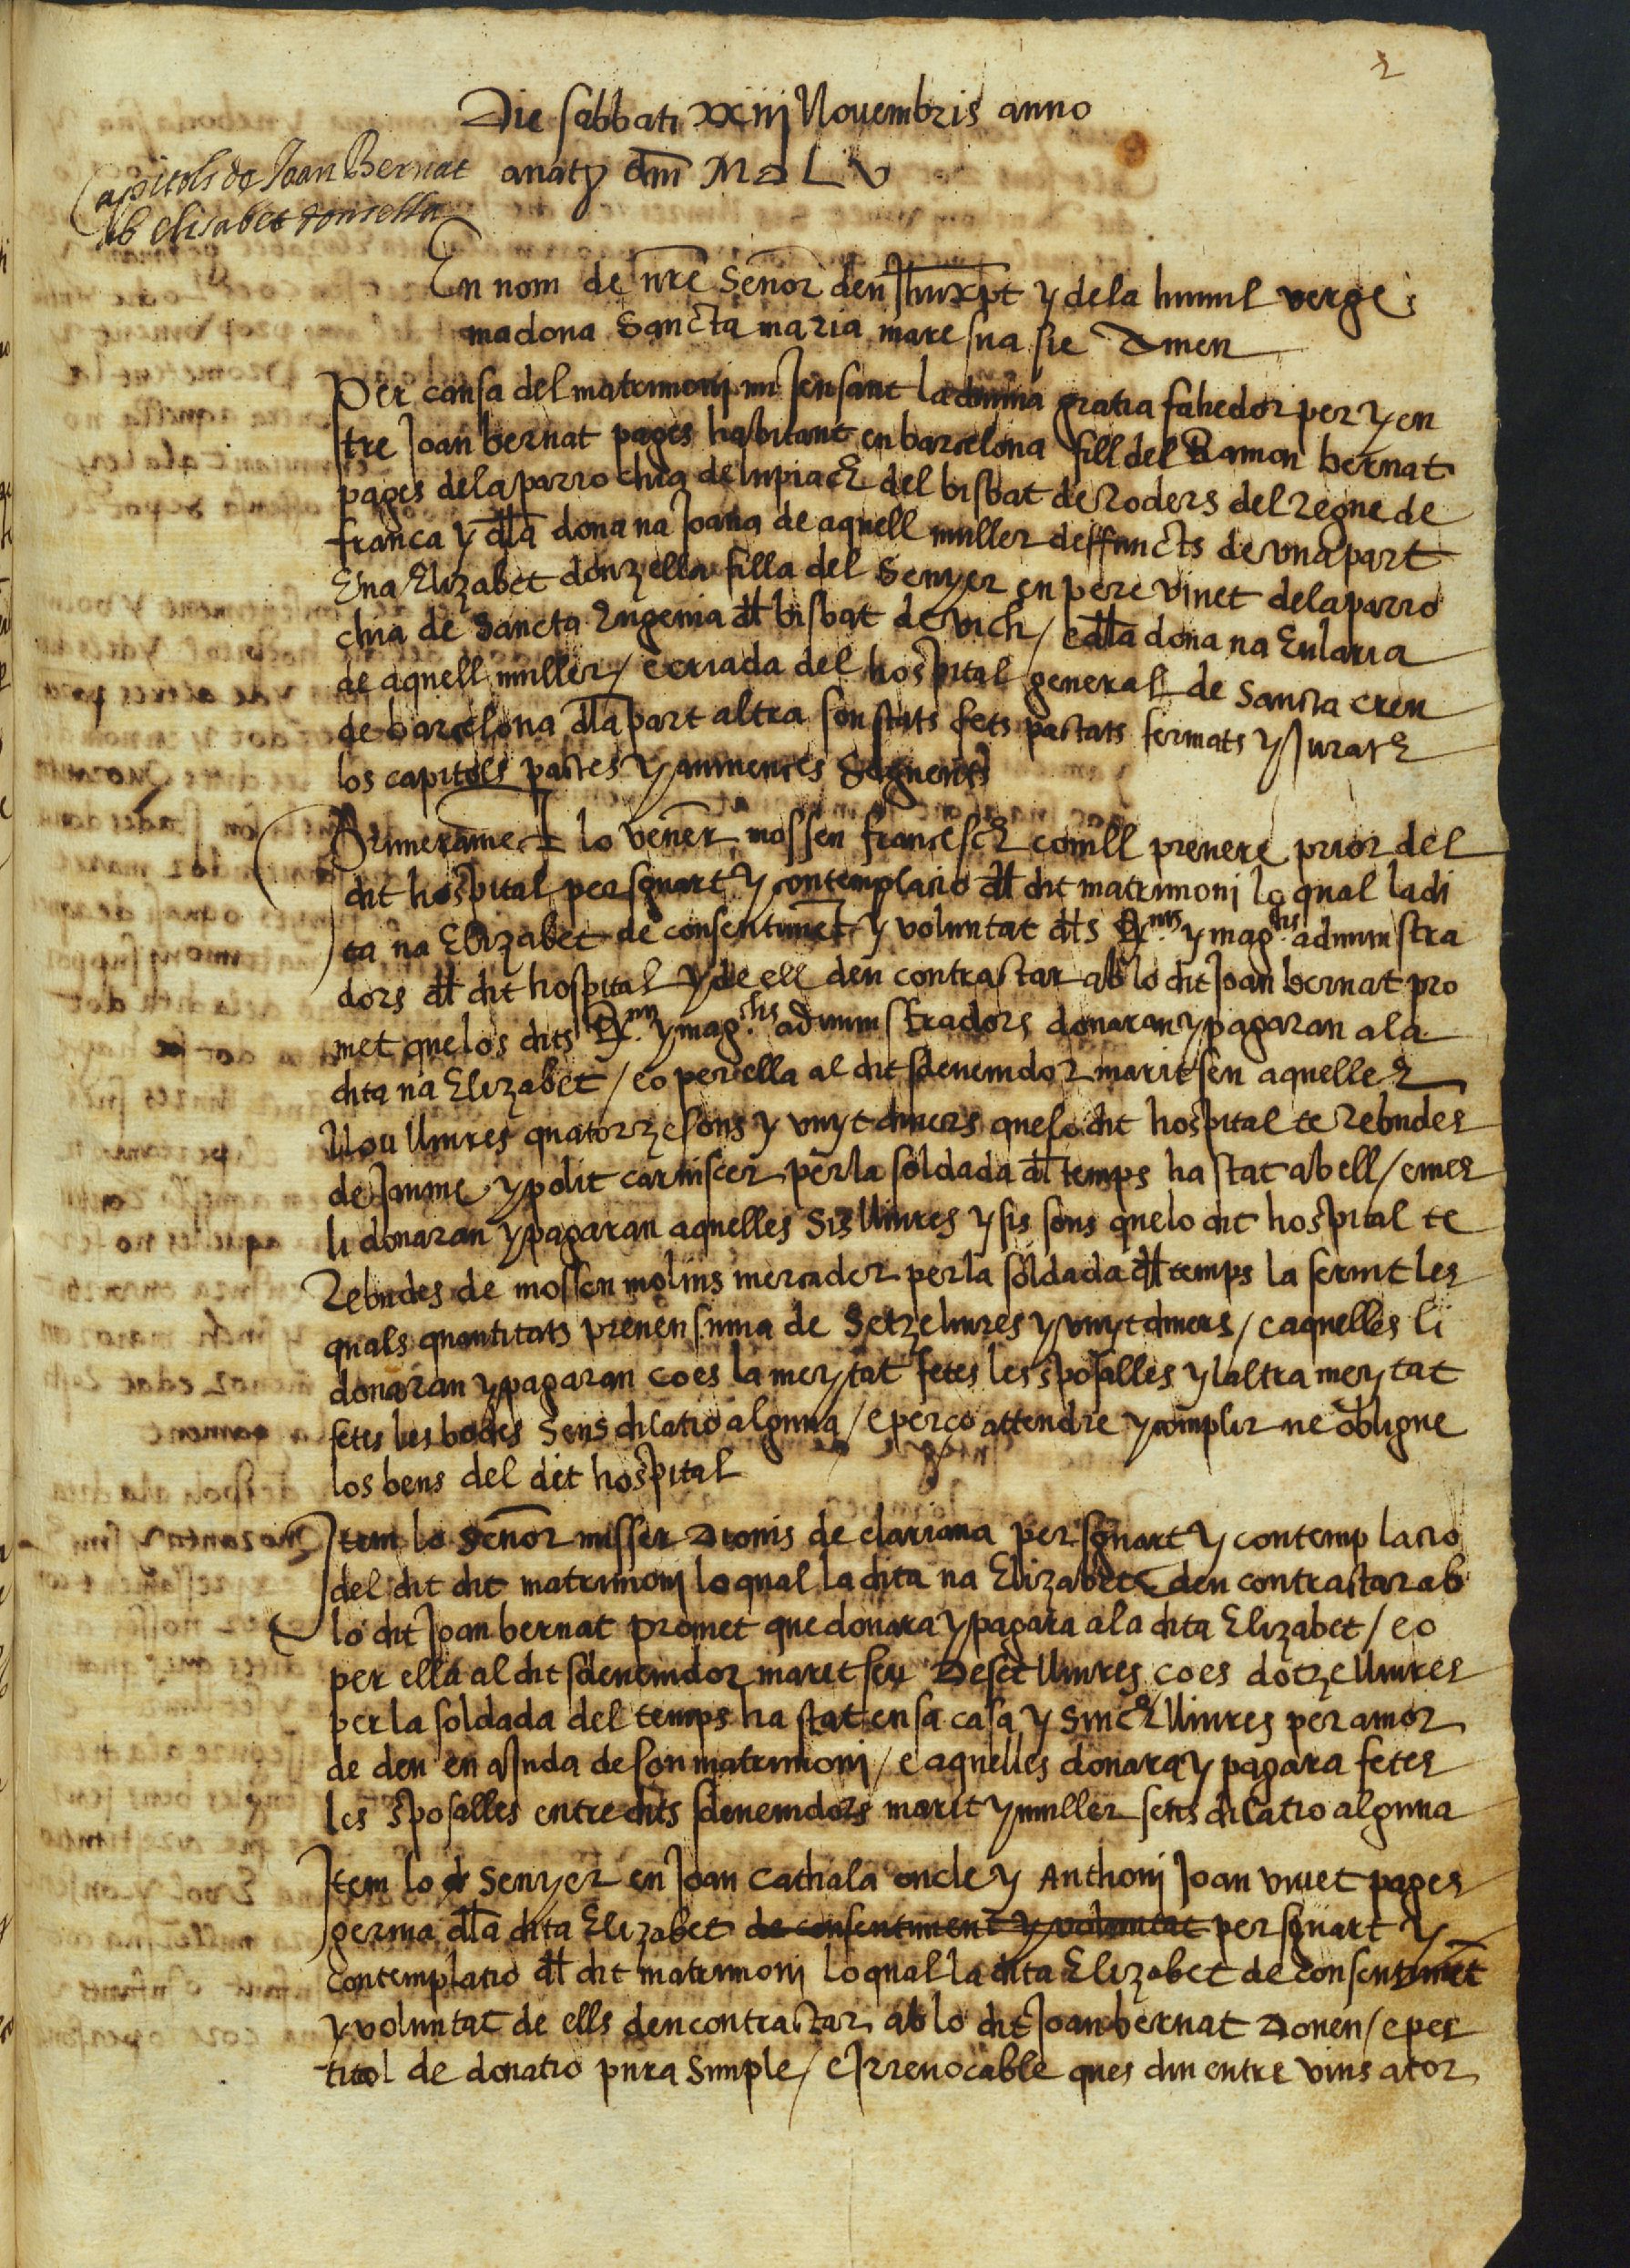 2
Die sabbati xxiij Novembris anno
anaty dni M D L V
Capitols de Joan Bernat
ab elisabet donsella
En nom de nre Senor deu Jhuxpt y de la humil verge
madona Sancta maria mare sua sie Amen
Per causa del matrimoni mijensant la divina gratia fahedor per y en
tre Joan bernat pages habitant en barcelona fill del Ramon bernat
pages dela parrochia de lupiach del bisbat de Roders del Regne de
franca y dla dona na Joana de aquell muller deffuncts de una part
E na Elizabet donzella filla del Senyer en pere vivet dela parro
chia de Sancta Eugenia dl bisbat de vich / e dla dona na Eularia
de aquell muller / e criada del hospital general de Sancta creu
de barcelona dla part altra son stats fets pactats fermats y Jurats
los capitols pactes y avinences Seguents
Primerament lo vener. mossen francesch comll prevere prior del
dit hospital per sguart y contemplacio dl dit matrimoni lo qual la di
ta na Elizabet de consentiment y voluntat dls R.nts y mag.chs administra
dors dl dit hospital y de ell deu contractar ab lo dit Joan bernat pro
met que los dits R.nts y mag.chs administradors donaran y pagaran a la
dita na Elizabet / eo per ella al dit sdevenidor marit seu aquelles
Nou lliures quatorze sous y vuyt diners que lo dit hospital te Rebudes
de Jaume ypolit carnisser per la soldada dl temps ha stat ab ell / e mes
li donaran y pagaran aquelles Sis lliures y sis sous que lo dit hospital te
Rebudes de mossen molins mercader per la soldada dl temps la servit les
quals quantitats prenen suma de Setze liures y vuyt diners / e aquelles li
donaran y pagaran ço es la meytat fetes les sposalles y laltra meytat
fetes les bodes Sens dilatio alguna / e per ço attendre y complir ne obligue
los bens del dit hospital
Item lo Senor misser Dionis de clariana per sguart y contemplacio
del dit dit matrimoni lo qual la dita na Elizabet deu contractar ab
lo dit Joan bernat promet que donara y pagara a la dita Elizabet / eo
per ella al dit sdevenidor marit seu Deset lliures ço es dotze lliures
per la soldada del temps ha stat en sa casa y Sinch lliures per amor
de deu en aJuda de son matrimoni / e aquelles donara y pagara fetes
les sposalles entre dits sdevenidors marit y muller sens dilatio alguna
Item lo Senyer en Joan Cathala oncle y Anthoni Joan vivet pages
germa dla dita Elizabet de consentiment y voluntat per sguart y
contemplatio dl dit matrimoni lo qual la dita Elizabet de consentimet
y voluntat de ells deu contractar ab lo dit Joan bernat Donen / e per
titol de donatio pura Simple / e Jrrevocable ques diu entre vius ator